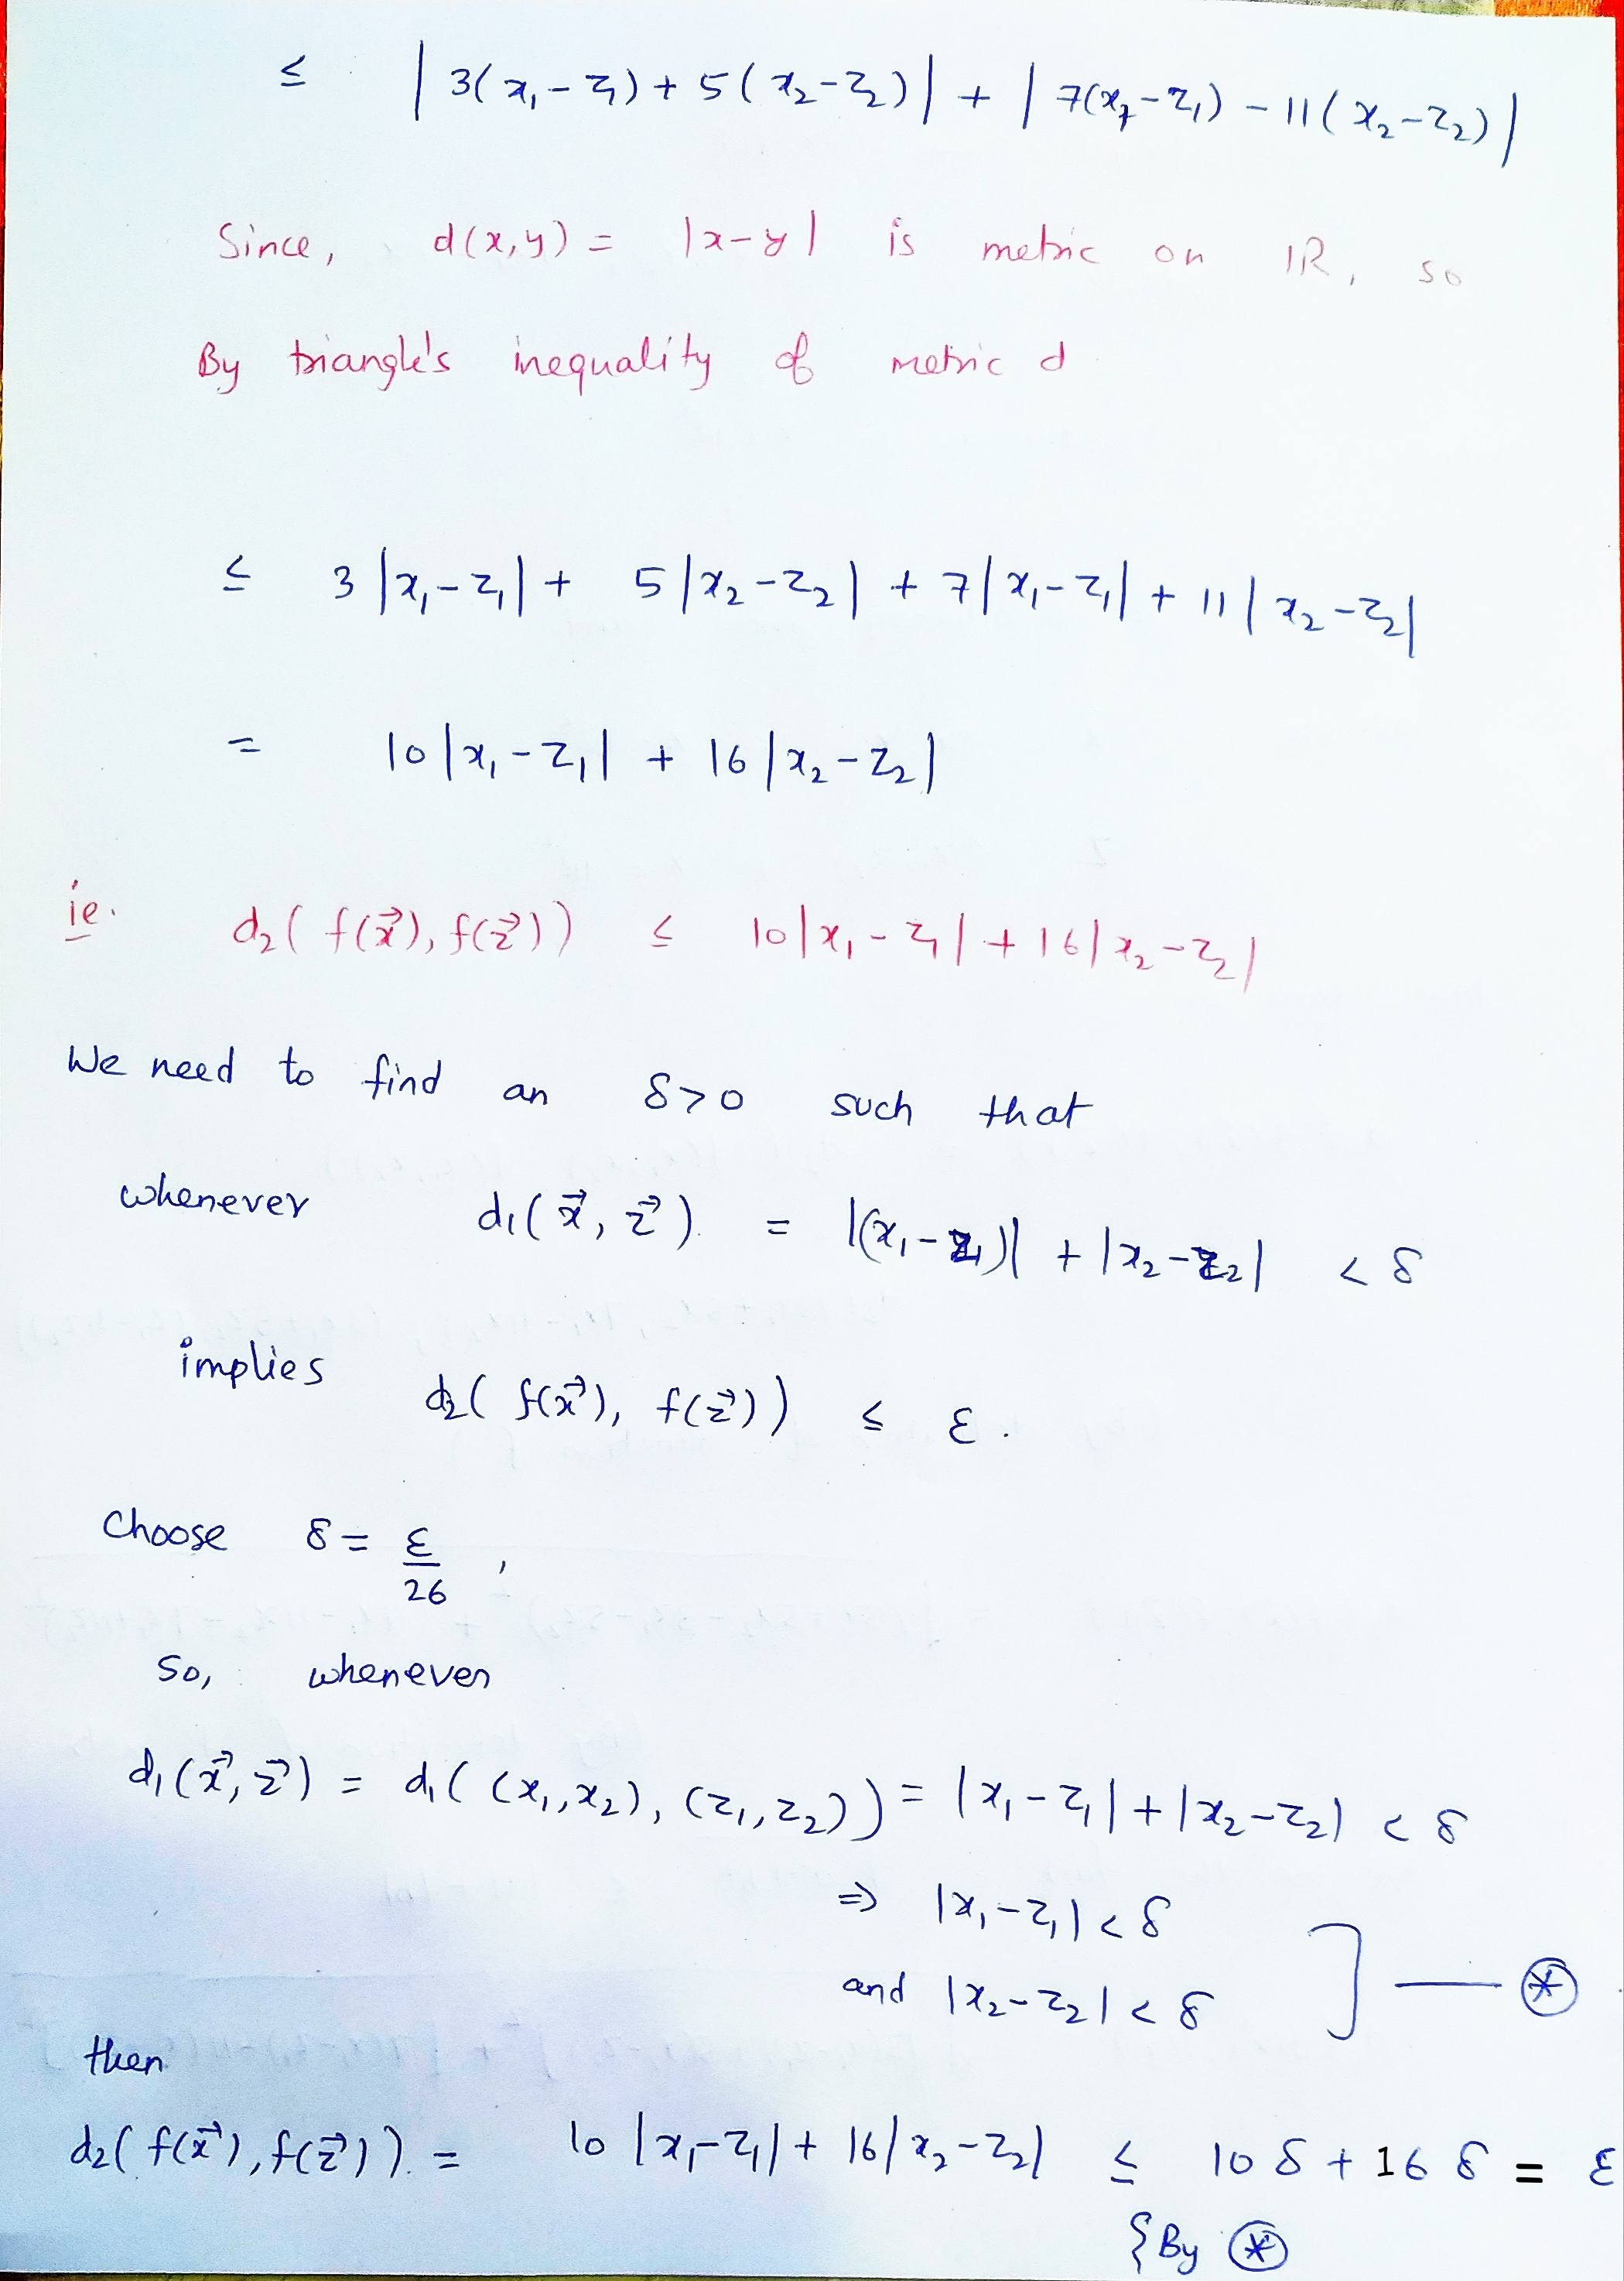 ≤ |3(x₁-z₁)+5(x₂-z₂)| + |7(x₁-z₁) - 11(x₂-z₂)|
Since, d(x,y) = |x-y| is metric on IR, so
By triangle's inequality of metric d
≤ 3|x₁-z₁| + 5|x₂-z₂| + 7|x₁-z₁| + 11|x₂-z₂|
= 10|x₁-z₁| + 16|x₂-z₂|
ie. d₂(f(x⃗), f(z⃗)) ≤ 10|x₁-z₁| + 16|x₂-z₂|
We need to find an δ>0 such that
whenever d₁(x⃗, z⃗) = |(x₁-z₁)| + |x₂-z₂| < δ
implies d₂(f(x⃗), f(z⃗)) ≤ ε.
Choose δ = ε/26,
so, whenever
d₁(x⃗, z⃗) = d₁((x₁,x₂), (z₁,z₂)) = |x₁-z₁| + |x₂-z₂| < δ
⇒ |x₁-z₁| < δ
and |x₂-z₂| < δ ] — ⊛
then
d₂(f(x⃗), f(z⃗)) = 10|x₁-z₁| + 16|x₂-z₂| ≤ 10δ + 16δ = ε
{By ⊛